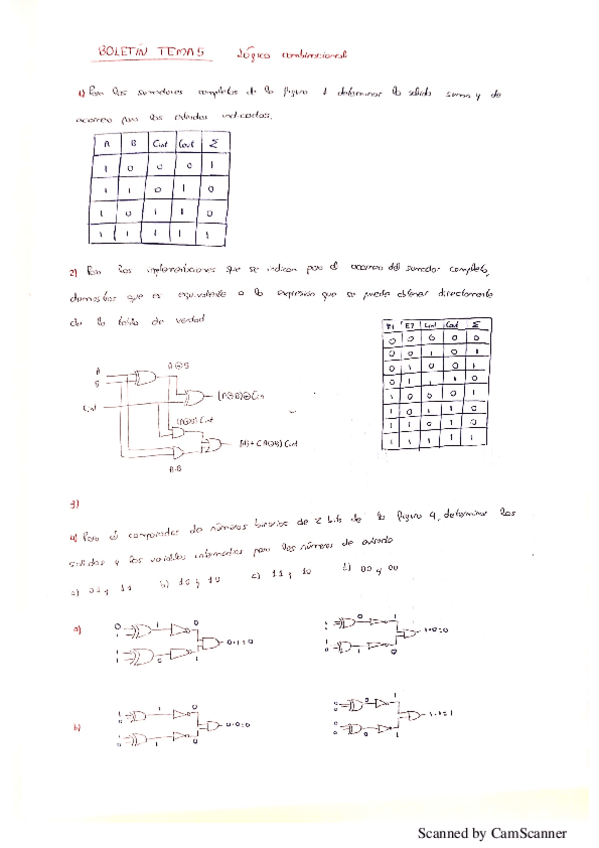 BOLETÍN TEMA 5 Lógica combinacional
1) Para los sumadores completos de la figura 1 determinar la salida suma y de
acarreo para las entradas indicadas.
A B Cint Cout Σ
1 0 0 0 1
1 1 0 1 0
1 0 1 1 0
1 1 1 1 1
2) Para las implementaciones que se indican para el acarreo del sumador completo,
demostrar que es equivalente a la expresión que se puede obtener directamente
de la tabla de verdad
Cint Cout Σ
0 0 0 0 0
0 0 1 0 1
0 1 0 0 1
0 1 1 1 0
1 0 0 0 1
1 0 1 1 0
1 1 0 1 0
1 1 1 1 1
A A⊕B
B
Cint (A⊕B)⊕Cin
(A⊕B) Cint
A·B
3)
Para el comparador de números binarios de 2 bits de la figura 4, determinar las
salidas y las variables intermedias para los números de entrada
a) 00 y 11 b) 10 y 10 c) 11 y 10 d) 00 y 00
a)
0·1=0
1·0=0
b)
0·0=0
1·1=1
Scanned by CamScanner